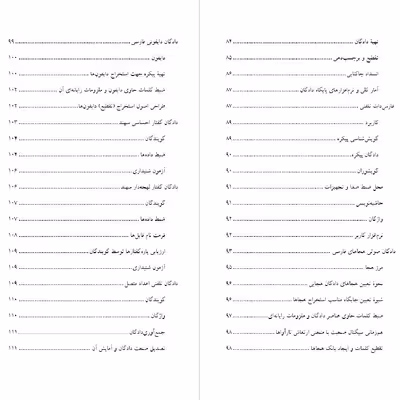 تهیهٔ دادگان ........ ۸۴
تقطیع و برچسب‌دهی ........ ۸۵
انسداد چاکنایی ........ ۸۶
آمار کلی و نرم‌افزارهای پایگاه دادگان ........ ۸۷
فارس‌دات تلفنی ........ ۸۷
کاربرد ........ ۸۹
گویش‌شناسی پیکره ........ ۸۹
دادگان پیکره ........ ۹۰
گویشوران ........ ۹۰
محل ضبط صدا و تجهیزات ........ ۹۱
حاشیه‌نویسی ........ ۹۱
واژگان ........ ۹۲
نرم‌افزار کاربر ........ ۹۲
دادگان صوتی هجاهای فارسی ........ ۹۳
مرز هجا ........ ۹۵
نحوهٔ تعیین هجاهای دادگان هجایی ........ ۹۶
شیوهٔ تعیین جایگاه مناسب استخراج هجاها ........ ۹۶
ضبط کلمات حاوی عناصر دادگان و ملزومات رایانه‌ای ........ ۹۷
همزمانی سیگنال صحبت با منحنی ارتعاش تارآواها ........ ۹۸
تقطیع کلمات و ایجاد بانک هجاها ........ ۹۸
دادگان دایفونی فارسی ........ ۹۹
دایفون ........ ۱۰۰
تهیهٔ پیکره جهت استخراج دایفون‌ها ........ ۱۰۰
ضبط کلمات حاوی دایفون و ملزومات رایانه‌ای آن ........ ۱۰۲
طراحی اصول استخراج (تقطیع) دایفون‌ها ........ ۱۰۲
دادگان گفتار احساسی سهند ........ ۱۰۳
گویندگان ........ ۱۰۴
ضبط داده‌ها ........ ۱۰۴
آزمون شنیداری ........ ۱۰۶
دادگان گفتار لهجه‌دار سهند ........ ۱۰۶
گویندگان ........ ۱۰۷
ضبط داده‌ها ........ ۱۰۷
فرمت نام فایل‌ها ........ ۱۰۸
ارزیابی پاره‌گفتارها توسط گویندگان ........ ۱۰۹
آزمون شنیداری ........ ۱۰۹
دادگان تلفنی اعداد متصل ........ ۱۰۹
گویندگان ........ ۱۱۰
واژگان ........ ۱۱۰
جمع‌آوری دادگان ........ ۱۱۱
تصدیق صحت دادگان و آمایش آن ........ ۱۱۱